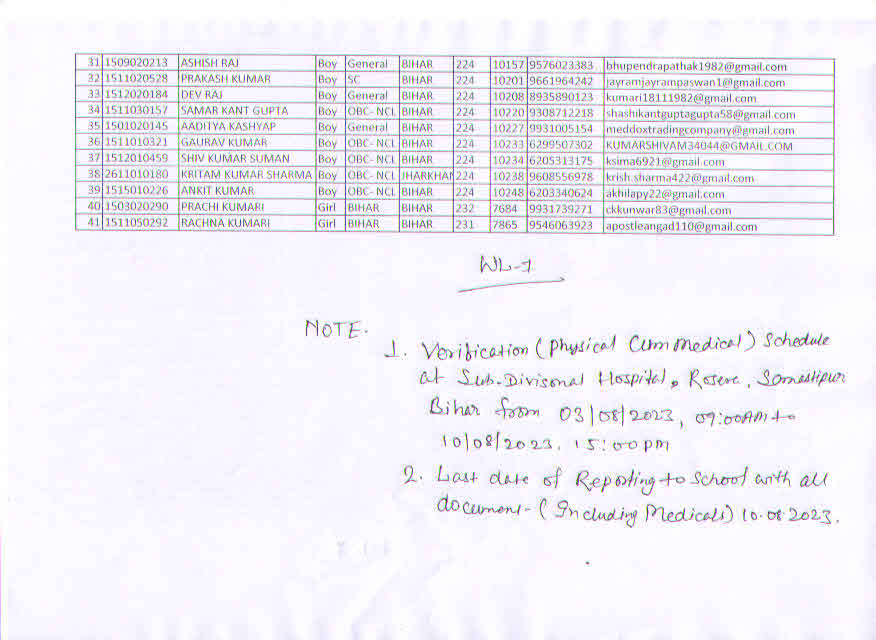 31 1509020213 ASHISH RAJ Boy General BIHAR 224 10157 9576023383 bhupendrapathak1982@gmail.com
32 1511020528 PRAKASH KUMAR Boy SC BIHAR 224 10201 9661964242 jayramjayrampaswan1@gmail.com
33 1512020184 DEV RAJ Boy General BIHAR 224 10208 8935890123 kumari18111982@gmail.com
34 1511030157 SAMAR KANT GUPTA Boy OBC- NCL BIHAR 224 10220 9308712218 shashikantguptagupta58@gmail.com
35 1501020145 AADITYA KASHYAP Boy General BIHAR 224 10227 9931005154 meddoxtradingcompany@gmail.com
36 1511010321 GAURAV KUMAR Boy OBC- NCL BIHAR 224 10233 6299507302 KUMARSHIVAM34044@GMAIL.COM
37 1512010459 SHIV KUMAR SUMAN Boy OBC- NCL BIHAR 224 10234 6205313175 ksima6921@gmail.com
38 2611010180 KRITAM KUMAR SHARMA Boy OBC- NCL JHARKHAN 224 10238 9608556978 krish.sharma422@gmail.com
39 1515010226 ANKIT KUMAR Boy OBC- NCL BIHAR 224 10248 6203340624 akhilapy22@gmail.com
40 1503020290 PRACHI KUMARI Girl BIHAR BIHAR 232 7684 9931739271 ckkunwar83@gmail.com
41 1511050292 RACHNA KUMARI Girl BIHAR BIHAR 231 7865 9546063923 apostleangad110@gmail.com
WL-1
NOTE.
1. Verification (Physical Cum Medical) Schedule
at Sub-Divisonal Hospital, Rosera, Samastipur
Bihar from 03/08/2023, 09:00AM to
10/08/2023, 15:00 pm
2. Last date of Reporting to School with all
document- (Including Medicals) 10.08.2023.